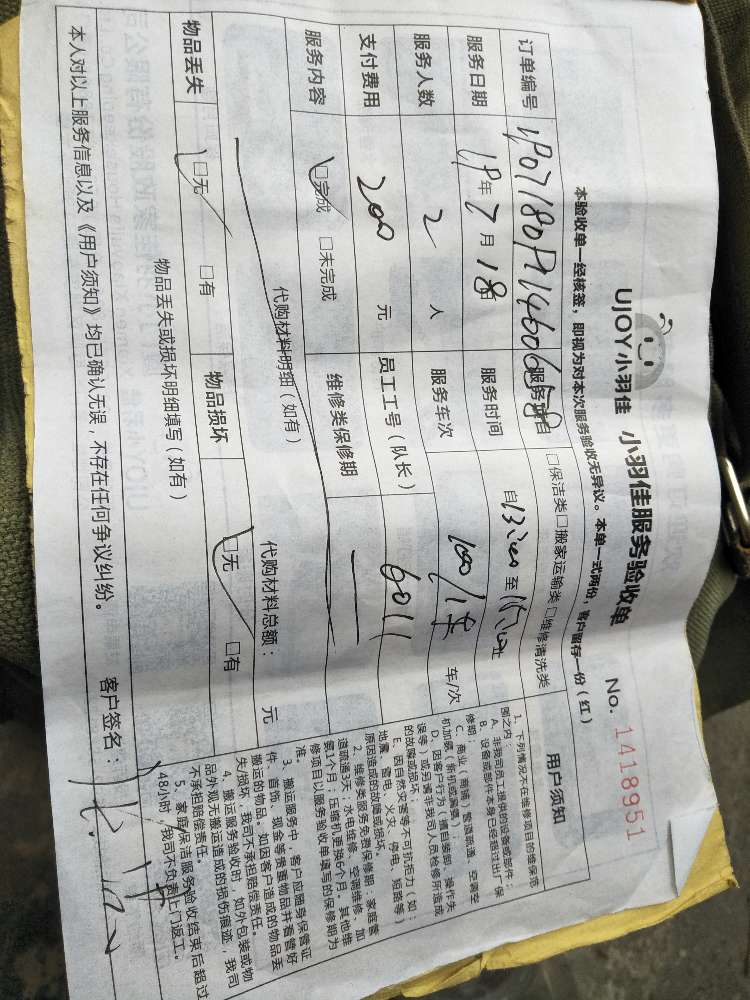 UJOY小羽佳 小羽佳服务验收单
No. 1418951
本验收单一经核签，即视为对本次服务验收无异议。本单一式两份，客户留存一份（红）
订单编号
服务项目 □保洁类□搬家运输类□维修清洗类
服务日期 19年7月18日
服务时间 自 至 止
服务人数 2 人
服务车次 车/次
支付费用 200 元
员工工号（队长） 6011
服务内容 □完成 □未完成
维修类保修期
代购材料明细（如有）
代购材料总额： 元
物品丢失 □无 □有
物品损坏 □无 □有
物品丢失或损坏明细填写（如有）
本人对以上服务信息以及《用户须知》均已确认无误，不存在任何争议纠纷。
客户签名：
用户须知
1、下列情况不在维修项目的维保范
围之内：
A、非我司员工提供的设备或部件；
B、设备或部件本身已经超过出厂保
修期；
C、商业（商铺）管道疏通，空调空
机加氟（拆机或漏氟）；
D、因客户行为（擅自装卸、操作失
误等）或另请非我司人员检修所造成
的故障或损坏；
E、因自然灾害等不可抗拒力（如：
地震、雷电、火灾、停电、短路等）
原因造成的故障或损坏。
2、维修类服务免费保修期：家庭管
道疏通3天；水电维修、空调维修、加
氟1个月；压缩机更换6个月。其他维
修项目以服务验收单填写的保修期为
准。
3、搬运服务中，客户应随身保管证
件、首饰、现金等贵重物品并看管好
搬运的物品。如因客户造成的物品丢
失/损坏，我司不承担赔偿责任。
4、搬运服务验收时，如外包装或物
品外观无搬运造成的损伤痕迹，我司
不承担赔偿责任。
5、家庭保洁服务验收结束后超过
48小时，我司不负责上门返工。